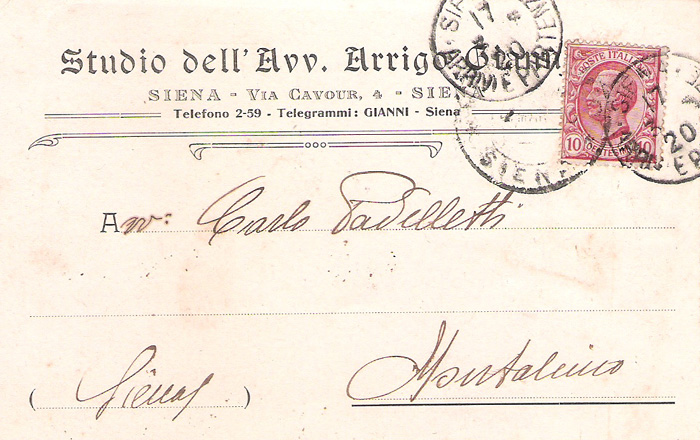 Studio dell'Avv. Arrigo Gianni
SIENA - VIA CAVOUR, 4 - SIENA
Telefono 2-59 - Telegrammi: GIANNI - Siena
POSTE ITALIANE
10 CENTESIMI 10
SIENA
17
20
ARRIVI E PARTENZE
SIENA
20
Avv: Carlo Padelletti
(Siena)
Montalcino